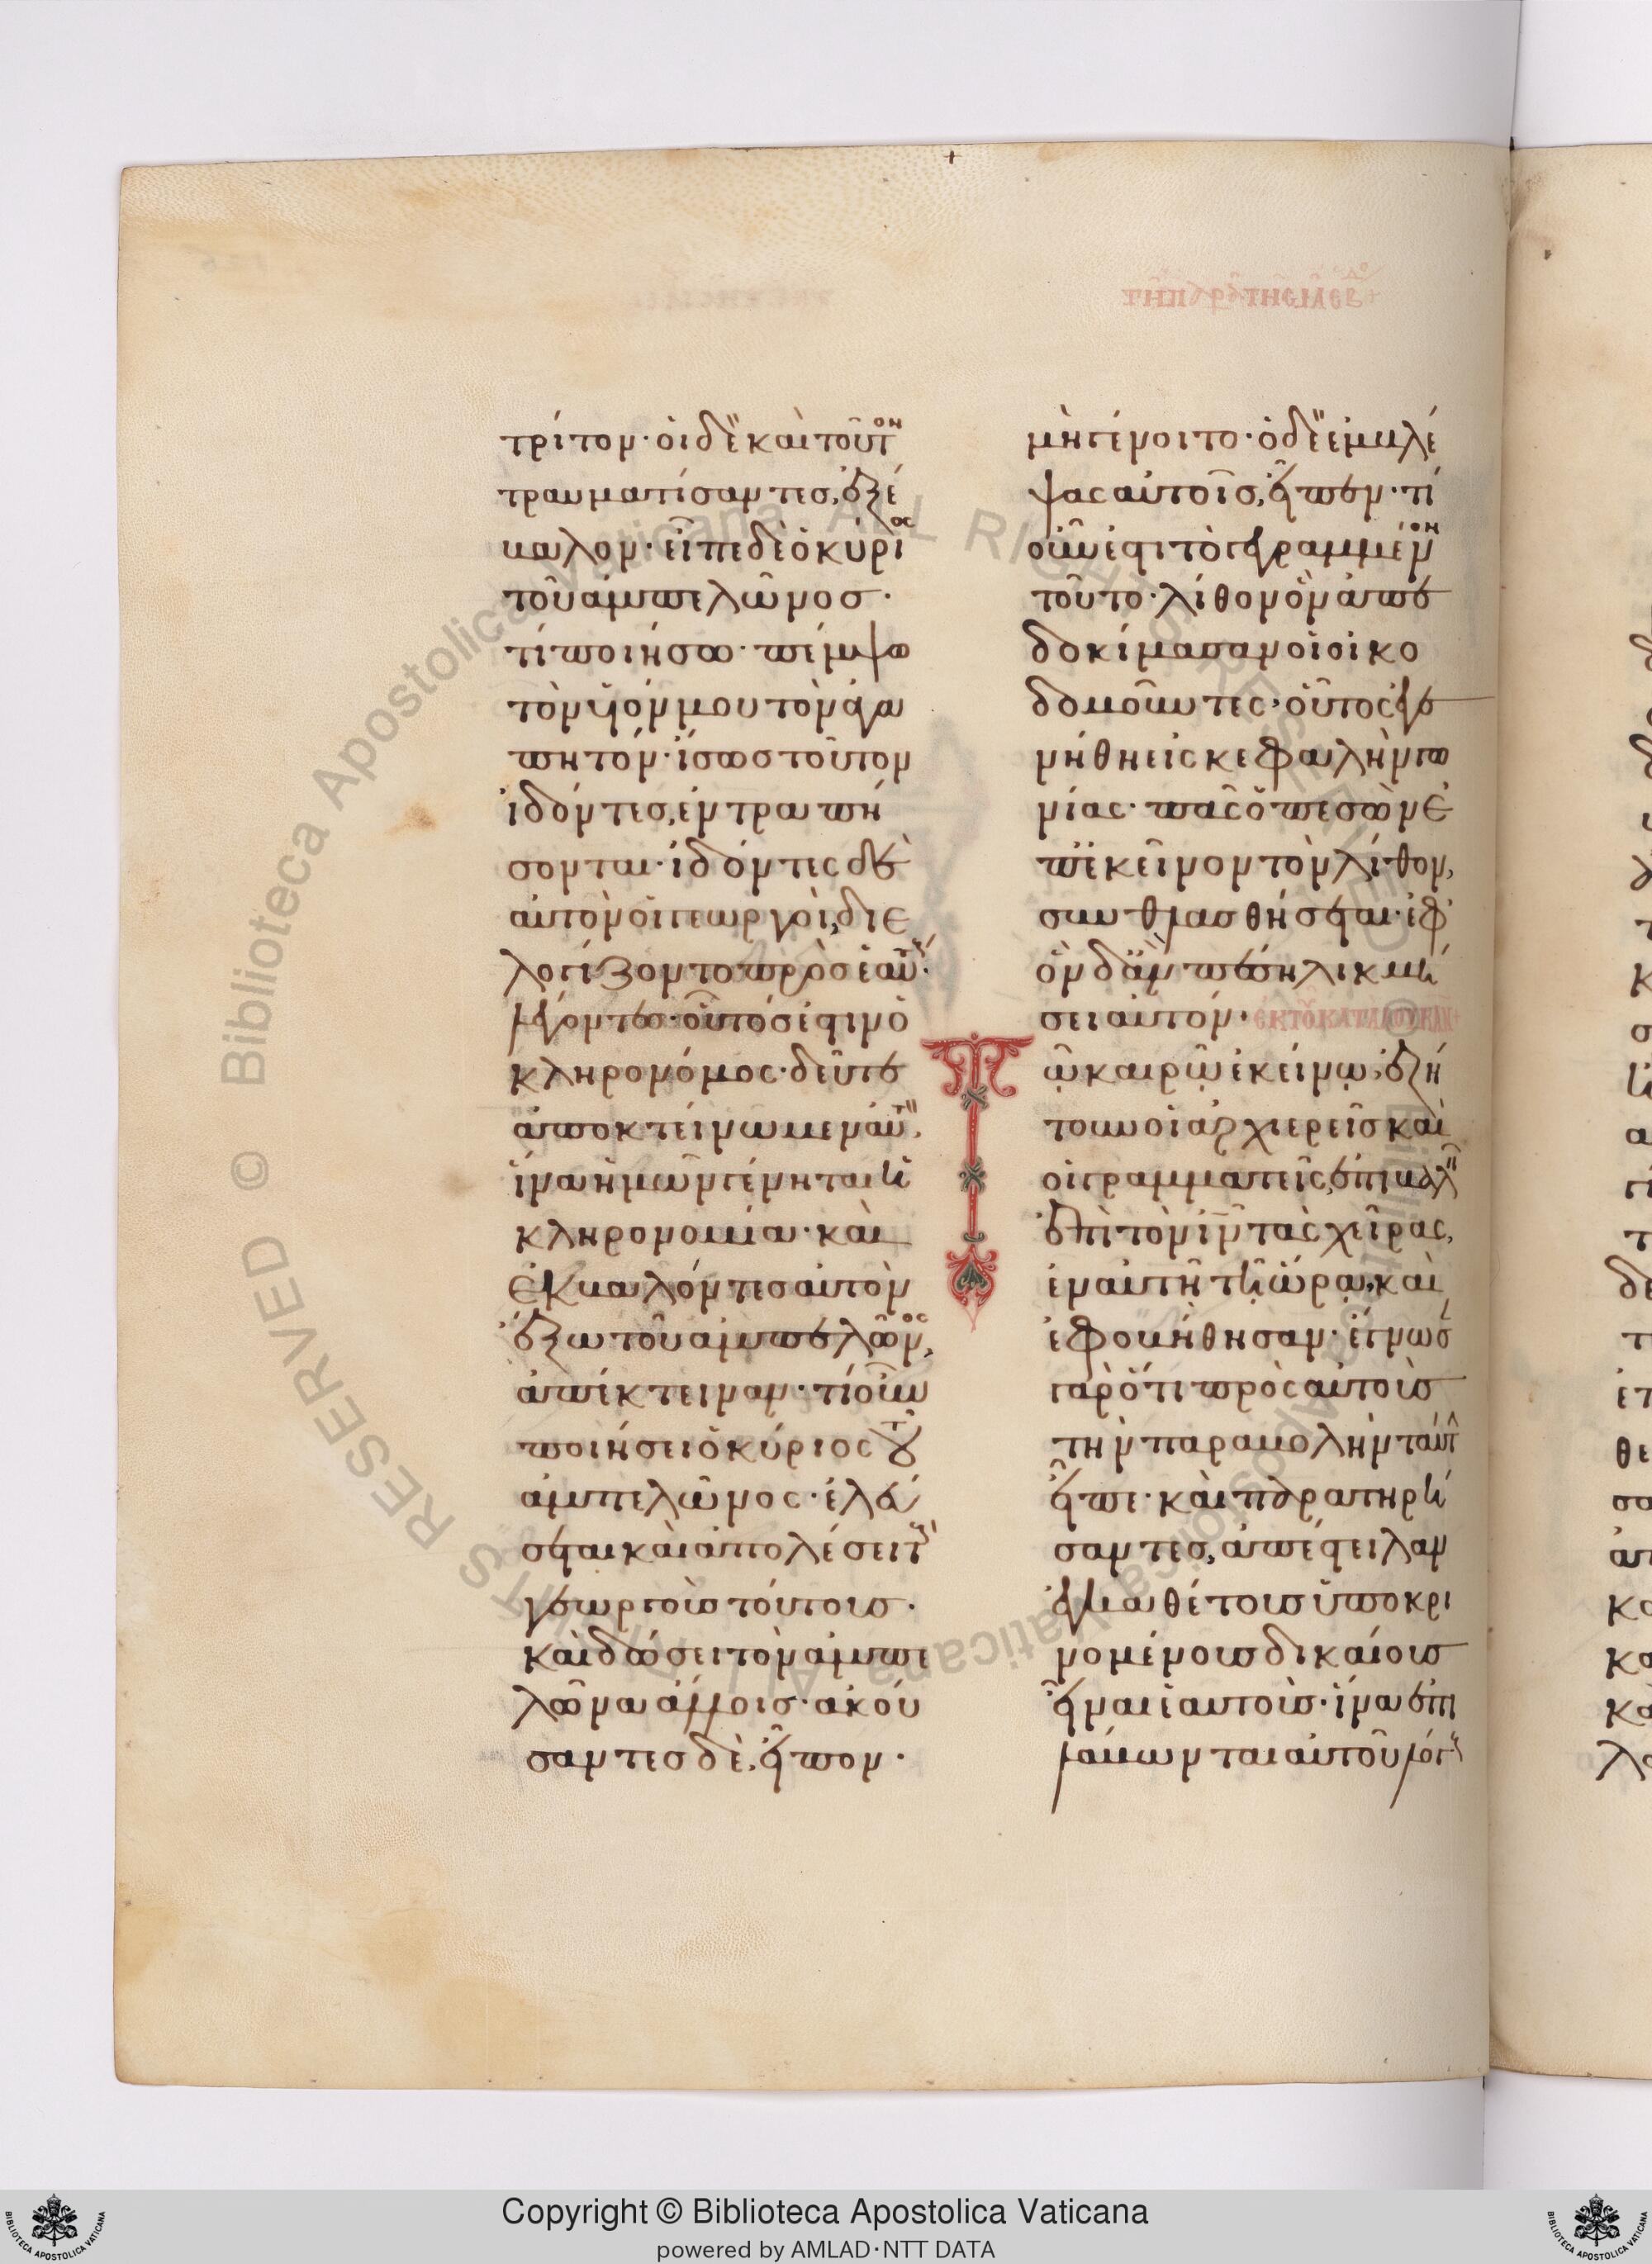 τρίτον· οἱ δὲ καὶ τοῦτον
τραυματίσαντες, ἐξέ
βαλον· εἶπε δὲ ὁ κύριος
τοῦ ἀμπελῶνοσ·
τί ποιήσω· πέμψω
τὸν υἱόν μου τὸν ἀγα
πητόν· ἴσωσ τοῦτον
ἰδόντεσ, ἐντραπή
σονται· ἰδόντες δὲ
αὐτὸν οἱ γεωργοὶ, διε
λογίζοντο πρὸσ ἑαυτούς·
λέγοντεσ· οὗτόσ ἐστιν ὁ
κληρονόμος· δεῦτε
ἀποκτείνωμεν αὐτόν,
ἵνα ἡμῶν γένηται ἡ
κληρονομία· καὶ
ἐκβαλόντεσ αὐτὸν
ἔξω τοῦ ἀμπελῶνος,
ἀπέκτειναν· τί οὖν
ποιήσει ὁ κύριος τοῦ
ἀμπελῶνος· ἐλεύ
σεται καὶ ἀπολέσει τοὺς
γεωργοὺσ τούτουσ·
καὶ δώσει τὸν ἀμπε
λῶνα ἄλλοις· ἀκού
σαντεσ δὲ, εἶπον·
μὴ γένοιτο· ὁ δὲ ἐμβλέ
ψας αὐτοῖσ, εἶπεν· τί
οὖν ἐστι τὸ γεγραμμένον
τοῦτο· λίθον ὃν ἀπε
δοκίμασαν οἱ οἰκο
δομοῦντες· οὗτος ἐγε
νήθη εἰς κεφαλὴν γω
νίας· πᾶς ὁ πεσὼν ἐ
π' ἐκεῖνον τὸν λίθον,
συνθλασθήσεται· ἐφ'
ὃν δ' ἂν πέσῃ λικμή
σει αὐτόν· ἐκ τοῦ κατὰ λουκᾶν
Τῷ καιρῷ ἐκείνῳ, ἐζή
τουν οἱ ἀρχιερεῖσ καὶ
οἱ γραμματεῖς, ἐπιβαλεῖν
ἐπὶ τὸν ιν τὰς χεῖρας,
ἐν αὐτῇ τῇ ὥρᾳ, καὶ
ἐφοβήθησαν· ἔγνωσαν
γὰρ ὅτι πρὸς αὐτοὺσ
τὴν παραβολὴν ταύτην
εἶπε· καὶ παρατηρή
σαντεσ, ἀπέστειλαν
ἐγκαθέτουσ ὑποκρι
νομένουσ δικαίουσ
εἶναι ἑαυτοὺσ· ἵνα ἐπι
λάβωνται αὐτοῦ λόγου
Copyright © Biblioteca Apostolica Vaticana
powered by AMLAD·NTT DATA